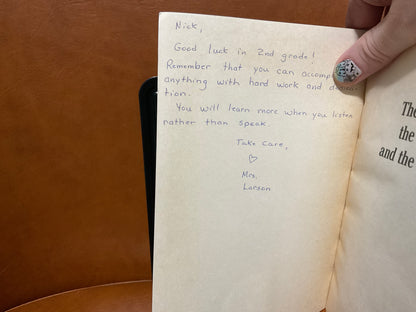 Nick,
Good luck in 2nd grade!
Remember that you can
anything with hard work and
tion.
You will learn more when you listen
rather than speak.
Take Care,
♡
Mrs.
Larson
The
the
and the